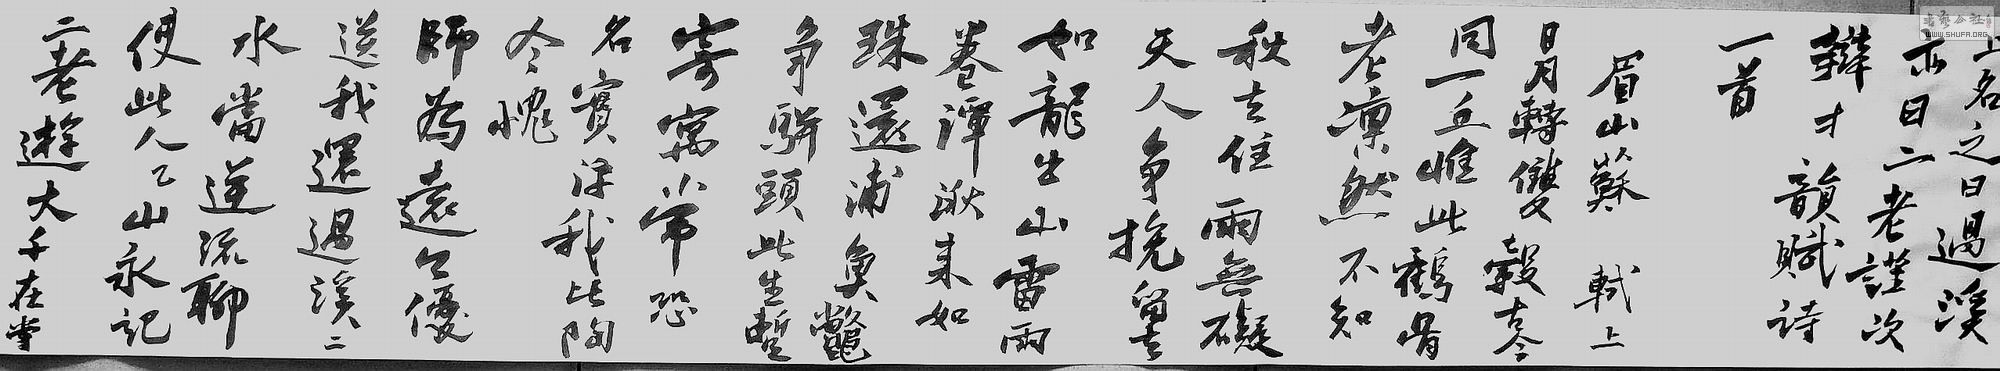 上名之日過溪
亦曰二老謹次
辯才韻賦詩
一首
眉山蘇軾上
日月轉雙轂古今
同一丘惟此鶴骨
老凜然不知
秋去住兩無礙
天人爭挽留去
如龍出山雷雨
卷潭湫来如
珠還浦魚鱉
爭駢頭此生暫
寄寓常恐
名實浮我比陶
令愧
師為遠公優
送我還過溪二
水當逆流聊
使此人乙山永記
二老遊大千在掌
WWW.SHUFA.ORG